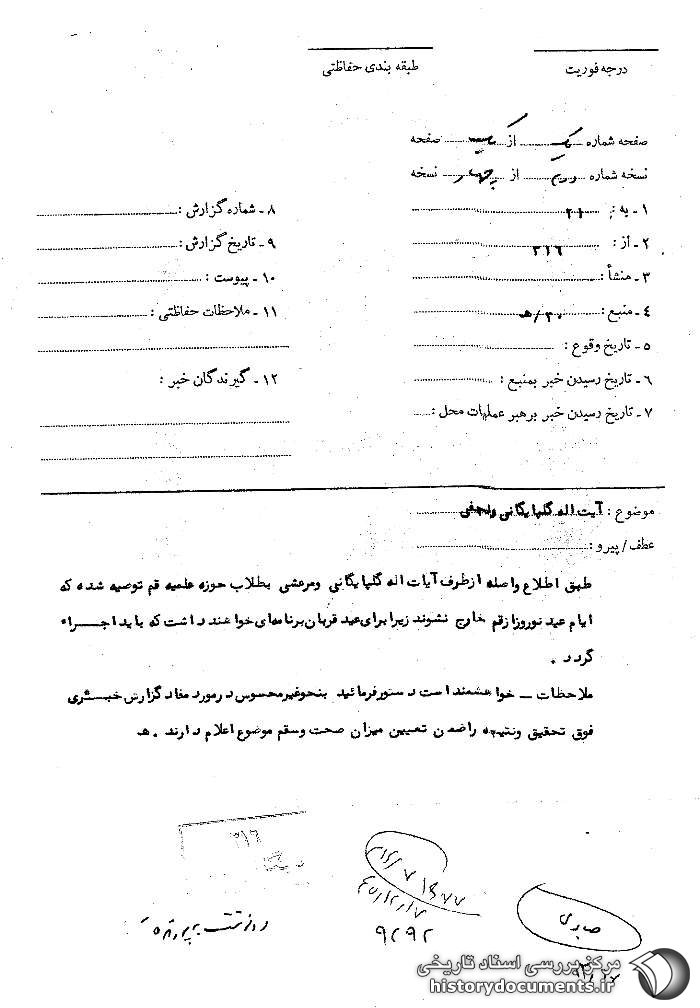 درجه فوریت
طبقه بندی حفاظتی
صفحه شماره یک از یک صفحه
نسخه شماره دویم از چهار نسخه
۱ - به : ۲۱
۲ - از : ۳۱۶
۳ - منشأ :
۴ - منبع : ۲۰/ه
۵ - تاریخ وقوع :
۶ - تاریخ رسیدن خبر بمنبع :
۷ - تاریخ رسیدن خبر برهبر عملیات محل :
۸ - شماره گزارش :
۹ - تاریخ گزارش :
۱۰ - پیوست :
۱۱ - ملاحظات حفاظتی :
۱۲ - گیرندگان خبر :
موضوع : آیت اله گلپایگانی ونجفی
عطف / پیرو :
طبق اطلاع واصله ازطرف آیات اله گلپایگانی ومرعشی بطلاب حوزه علمیه قم توصیه شده که
ایام عید نوروز ازقم خارج نشوند زیرا برای عید قربان برنامه‌ای خواهند داشت که باید اجراء
گردد .
ملاحظات – خواهشمند است دستورفرمائید بنحوغیرمحسوس درمورد مفاد گزارش خبری
فوق تحقیق ونتیجه راضمن تعیین میزان صحت وسقم موضوع اعلام دارند . ه
۳۱۶
۴۵/۱۲/۱۷
۹۲۹۲
مرکز بررسی اسناد تاریخی
historydocuments.ir